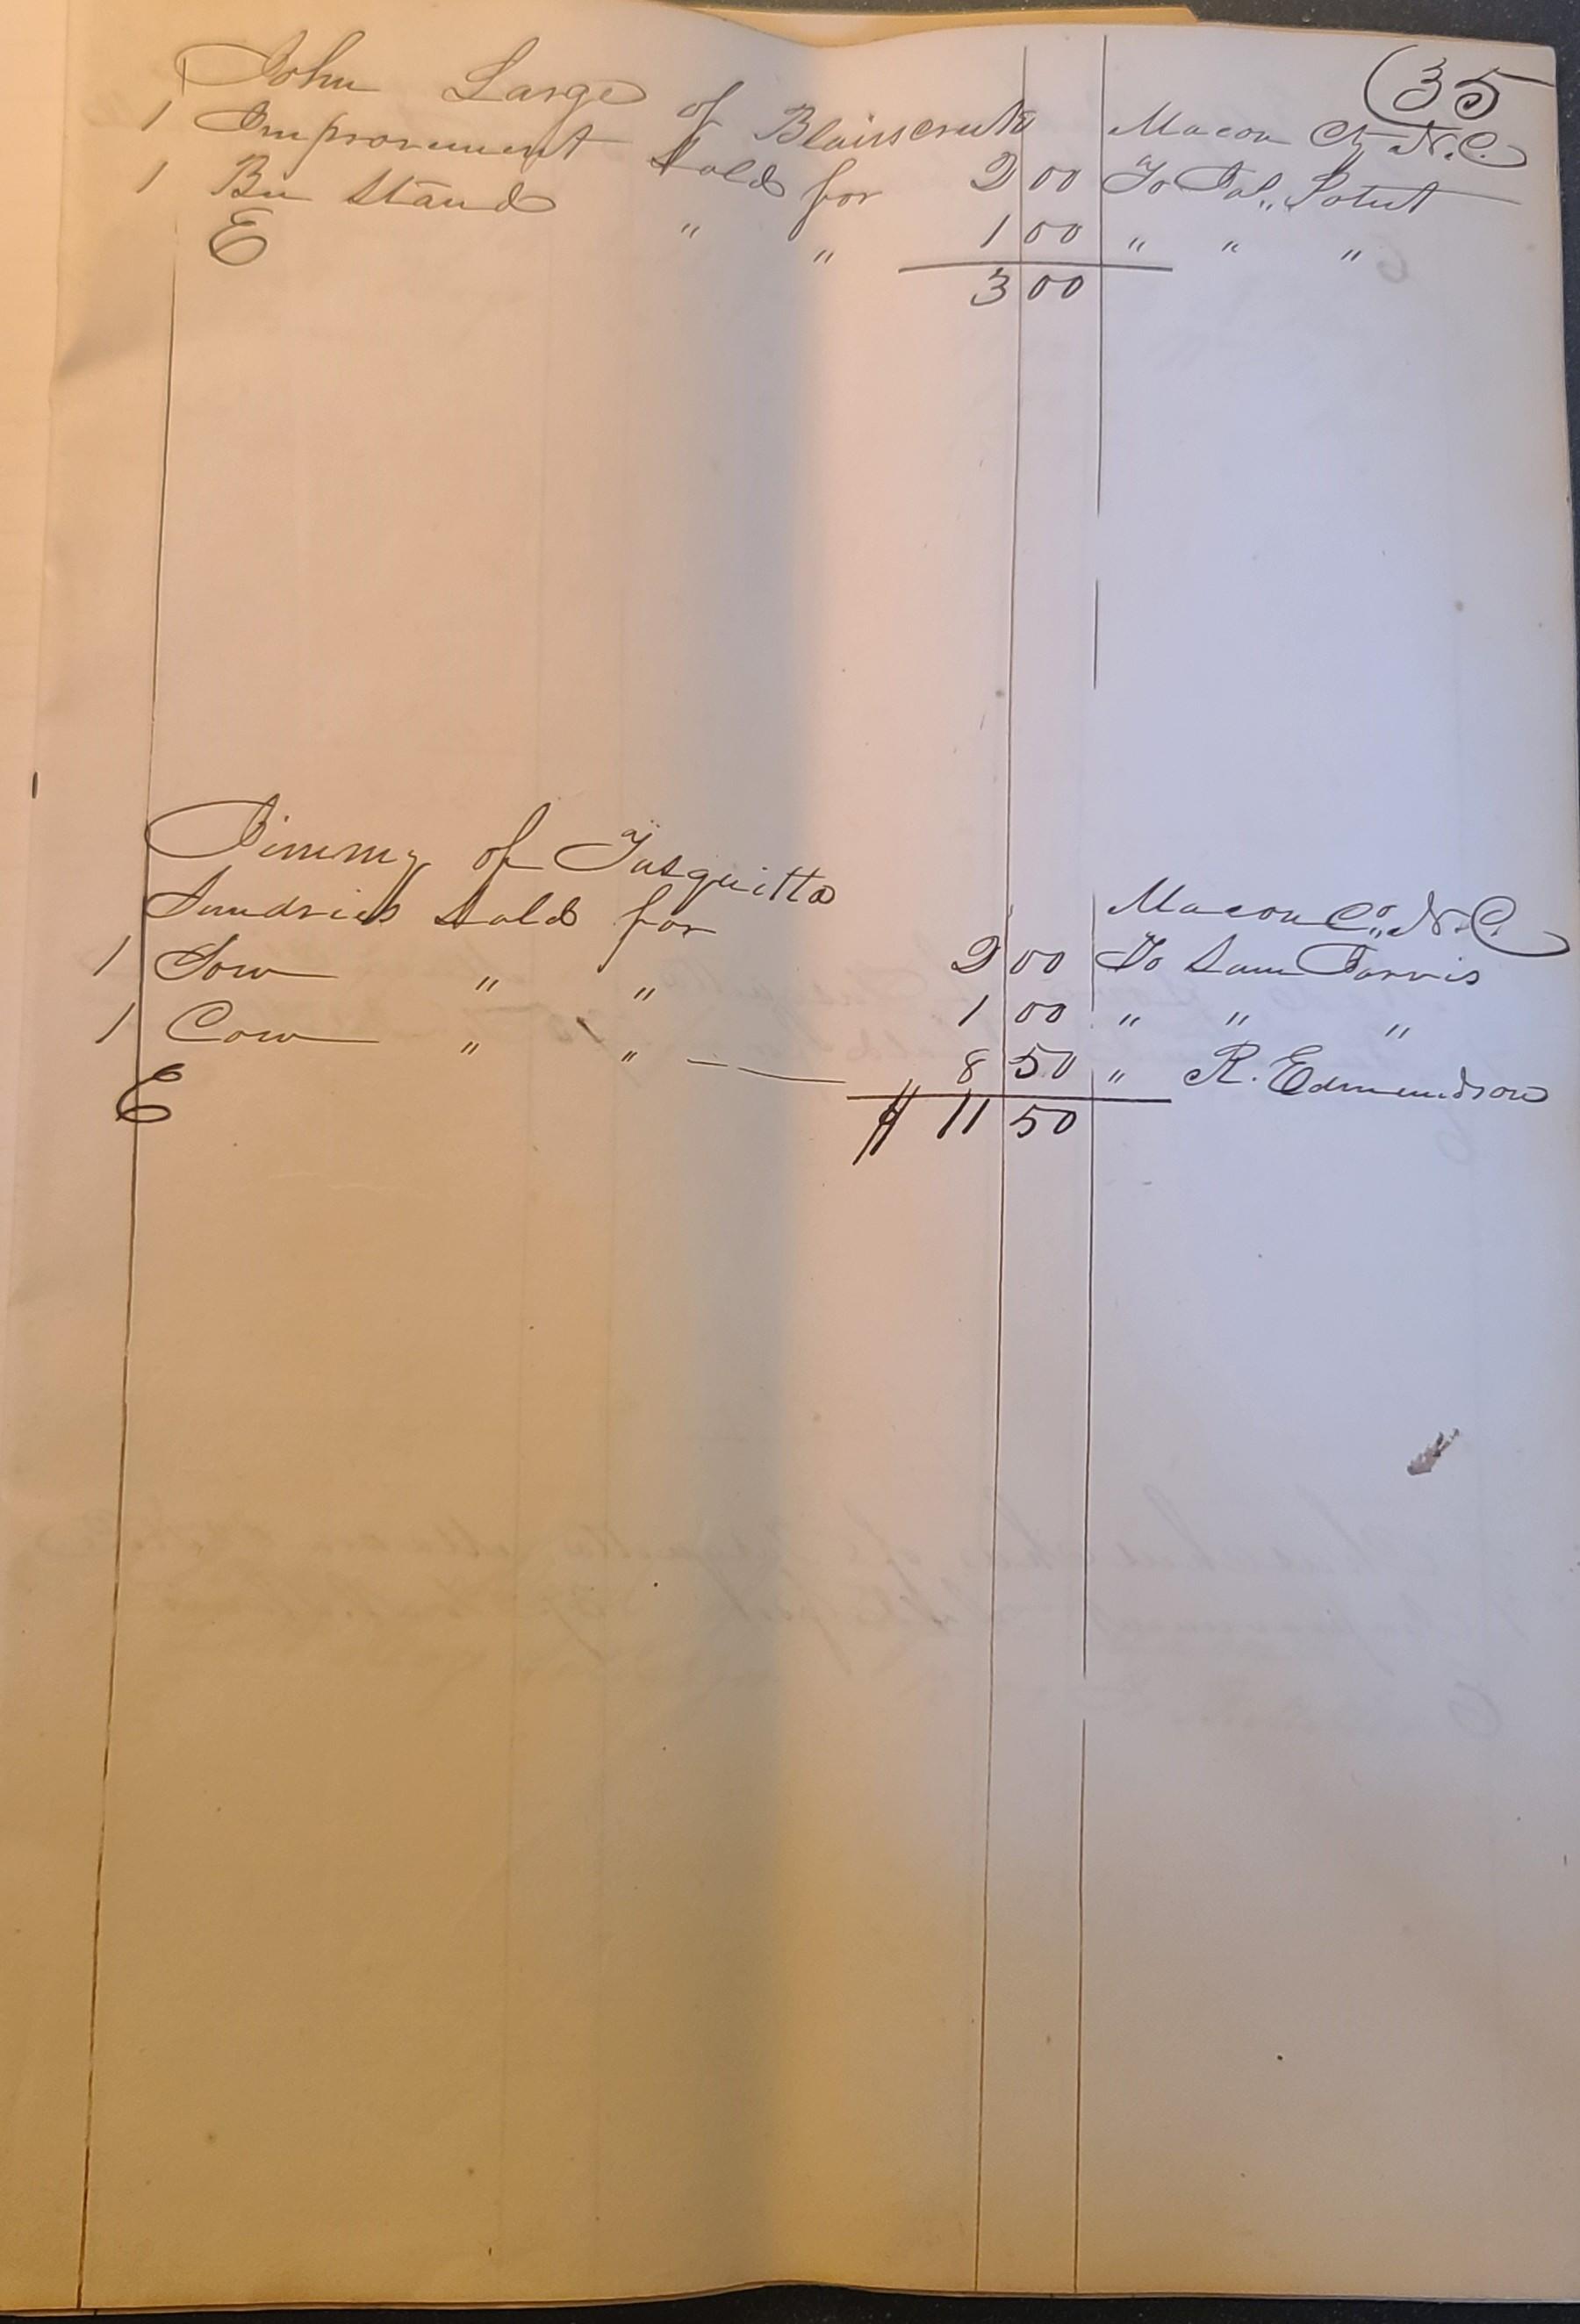 (35
John Large of Blairscreek Macon Cty N.C.
1 Improvement Sold for 2 00 To Jas,, Poteet
1 Bee Stand " " 1 00 " " "
E 3 00
Jimmy of Tusquitta Macon Co,, N.C.
Sundries Sold for 2 00 To Sam Jarvis
1 Sow " " 1 00 " " "
1 Cow " " 8 50 " R. Edmundson
E $ 11 50